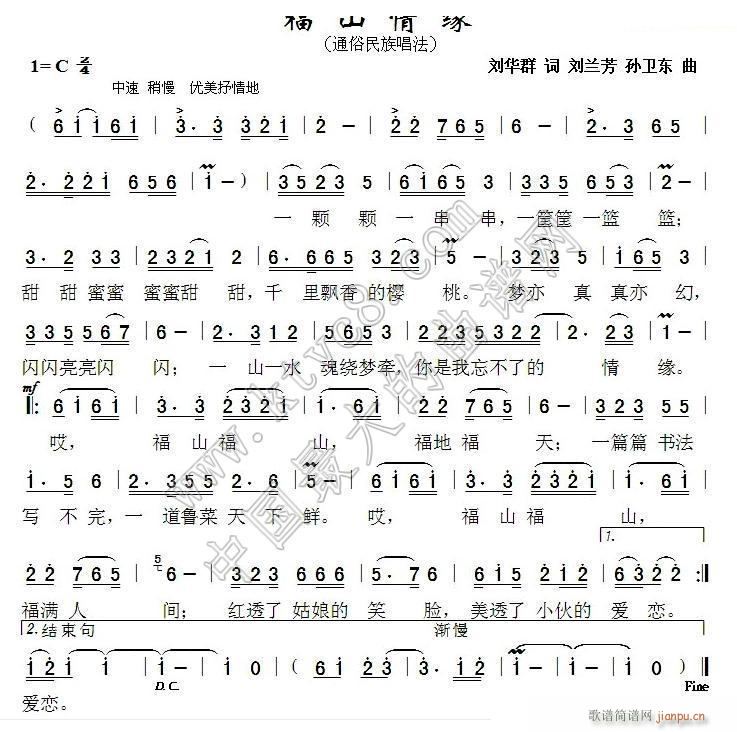 福山情缘
（通俗民族唱法）
1=C 2/4 刘华群 词 刘兰芳 孙卫东 曲
中速 稍慢 优美抒情地
（ 6 i i 6 i | 3· 3 3 2 i | 2 - | 2 2 7 6 5 | 6 - | 2· 3 6 5 |
2· 2 2 i 6 5 6 | i - ） | 3 5 2 3 5 | 6 i 6 5 | 3 2 3 5 5 6 5 | i· 6 |
一颗颗一串串，一筐筐一篮篮；
3· 2 3 2 3 2 | 2 - | 6· 6 6 5 3 5 6 | 5 - | 3 2 3 5 6 i | 3 |
甜甜蜜蜜蜜蜜甜甜，千里飘香的樱桃。梦亦真真亦幻，
3 3 5 5 5 6 7 | 6 - | 2· 3 | 3 i 2 | 5 6 5 3 | 2 3 3 5 3 2 3 | 5· 6 | i - |
闪闪亮亮闪闪；一山一水魂绕梦牵，你是我忘不了的情缘。
mf
‖: 6 i 6 i | 3· 3 2 3 2 i | i· 6 i | 2 2 7 6 5 | 6 - | 3 2 3 5 5 |
哎，福山福山，福地福天；一篇篇书法
i· 5 6 | 2· 3 5 5 | 2· 6 | 5 - | 6 i 6 i | 3· 3 2 3 2 i | i· 6 i |
写不完，一道鲁菜天下鲜。哎，福山福山，
1.
2 2 7 6 5 | 5 6 - | 3 2 3 5 6 | 5· 7 6 | 6 i 6 5 2 i 2 | 6 3 2 2 :‖
福满人间；红透了姑娘的笑脸，美透了小伙的爱恋。
2. 结束句 渐慢
i 2 i | i - | i 0 （ 6 i 2 i 2 | i - | i - | i 0 ） ‖
D.C. Fine
爱恋。
www.ktvc8.com
中国最大的曲谱网
歌谱简谱网
jianpu.cn